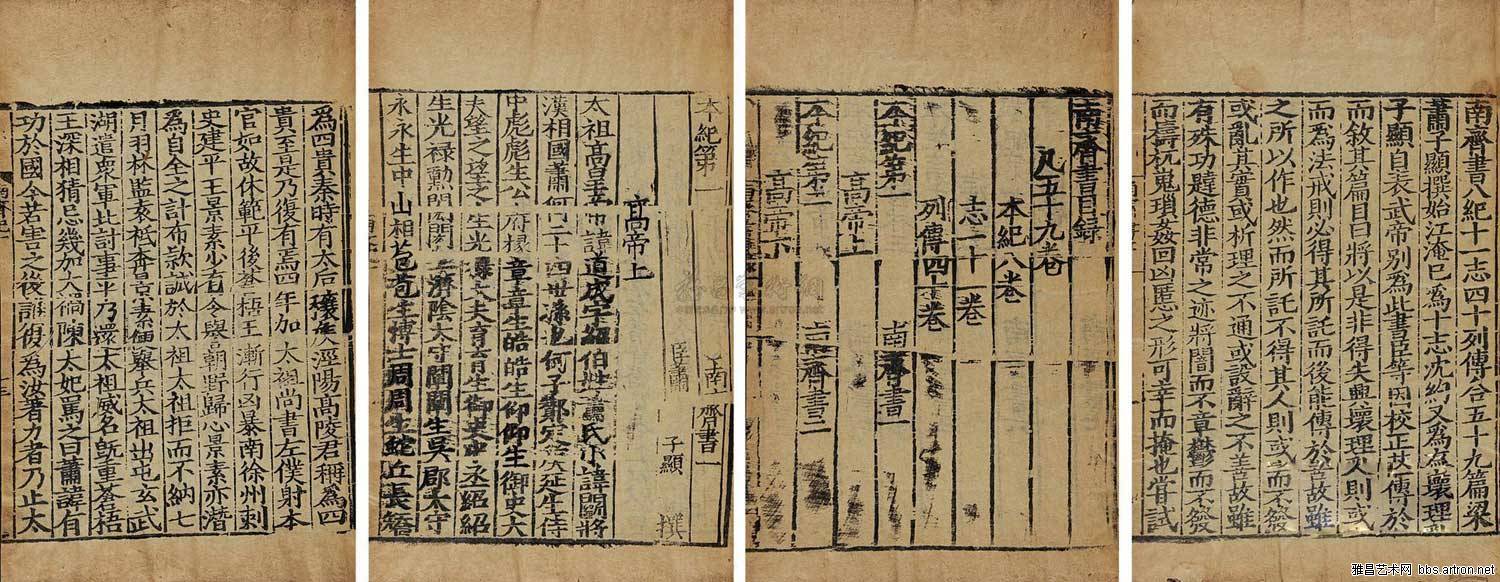 南齊書八紀十一志四十列傳合五十九篇梁
蕭子顯撰始江淹巳爲十志沈約又爲爲壞理
子顯自表武帝別爲此書臣等因校正其傳於
而敘其篇目曰將以是非得失興壞理人則或
而爲法戒則必得其所託而後能傳於善故雖
之所以作也然而所託不得其人則或而不發
或亂其實或析理之不通或設辭之不善故雖
有殊功韙德非常之迹將闇而不章鬱而不發
而檮杌嵬瑣姦回凶慝之形可幸而掩也嘗試
南齊書目錄
凡五十九卷
本紀八卷
志一十一卷
列傳四十卷
本紀第一 南齊書一
高帝上
本紀第二 南齊書二
高帝下
本紀第一 南齊書一
臣蕭子顯撰
高帝上
太祖高皇帝諱道成字紹伯姓蕭氏小諱鬭將
漢相國蕭何二十四世孫也何子酇定侯延生侍
中彪彪生公府掾章章生皓皓生仰仰生御史大
夫望之望之生光祿大夫育育生御史中丞紹紹
生光祿勳閎閎生濟陰太守闡闡生吳郡太守
永永生中山相苞苞生博士周周生蛇丘長矯
爲四貴秦時有太后穰侯涇陽高陵君稱爲四
貴至是乃復有焉四年加太祖尚書左僕射本
官如故休範平後蒼梧王漸行凶暴南徐州刺
史建平王景素少有令譽朝野歸心景素亦潛
爲自全之計布款誠於太祖太祖拒而不納七
月羽林監袁祗奔景素便舉兵太祖出屯玄武
湖遣衆軍北討事平乃還太祖威名旣重蒼梧
王深相猜忌幾加大禍陳太妃罵之曰蕭諱有
功於國今若害之後誰復爲汝著力者乃止太
雅昌艺术网 bbs.artron.net